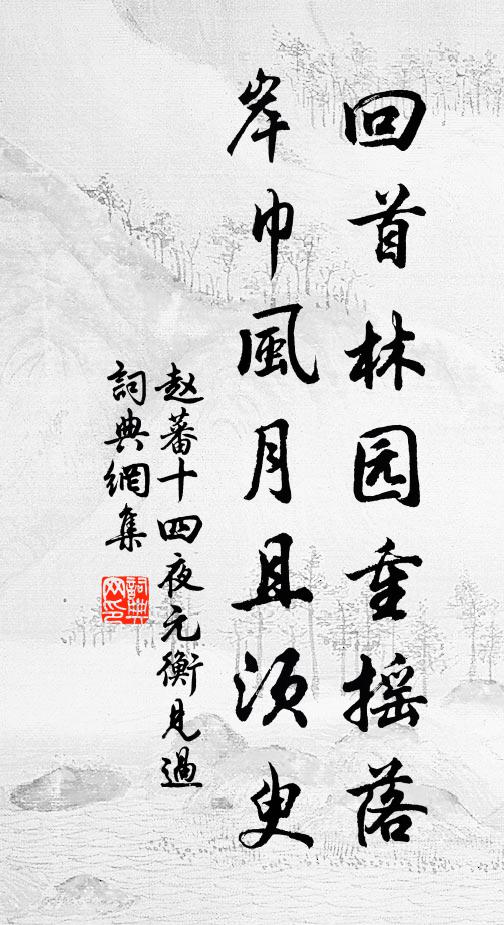 回首林园重摇落
岸巾風月且须臾
赵蕃十四夜元衡见過
詞典網集